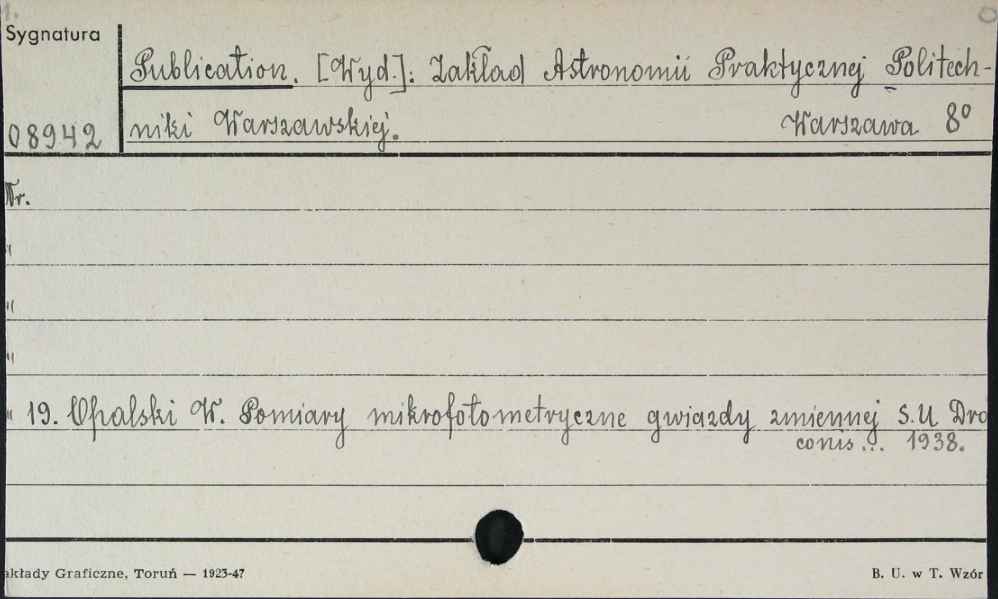 Sygnatura
Publication. [Wyd.]: Zakład Astronomii Praktycznej Politech-
08942 niki Warszawskiej. Warszawa 8°
Nr.
"
"
"
" 19. Opalski W. Pomiary mikrofotometryczne gwiazdy zmiennej S.U Dra
conis ... 1938.
akłady Graficzne, Toruń — 1923-47
B. U. w T. Wzór